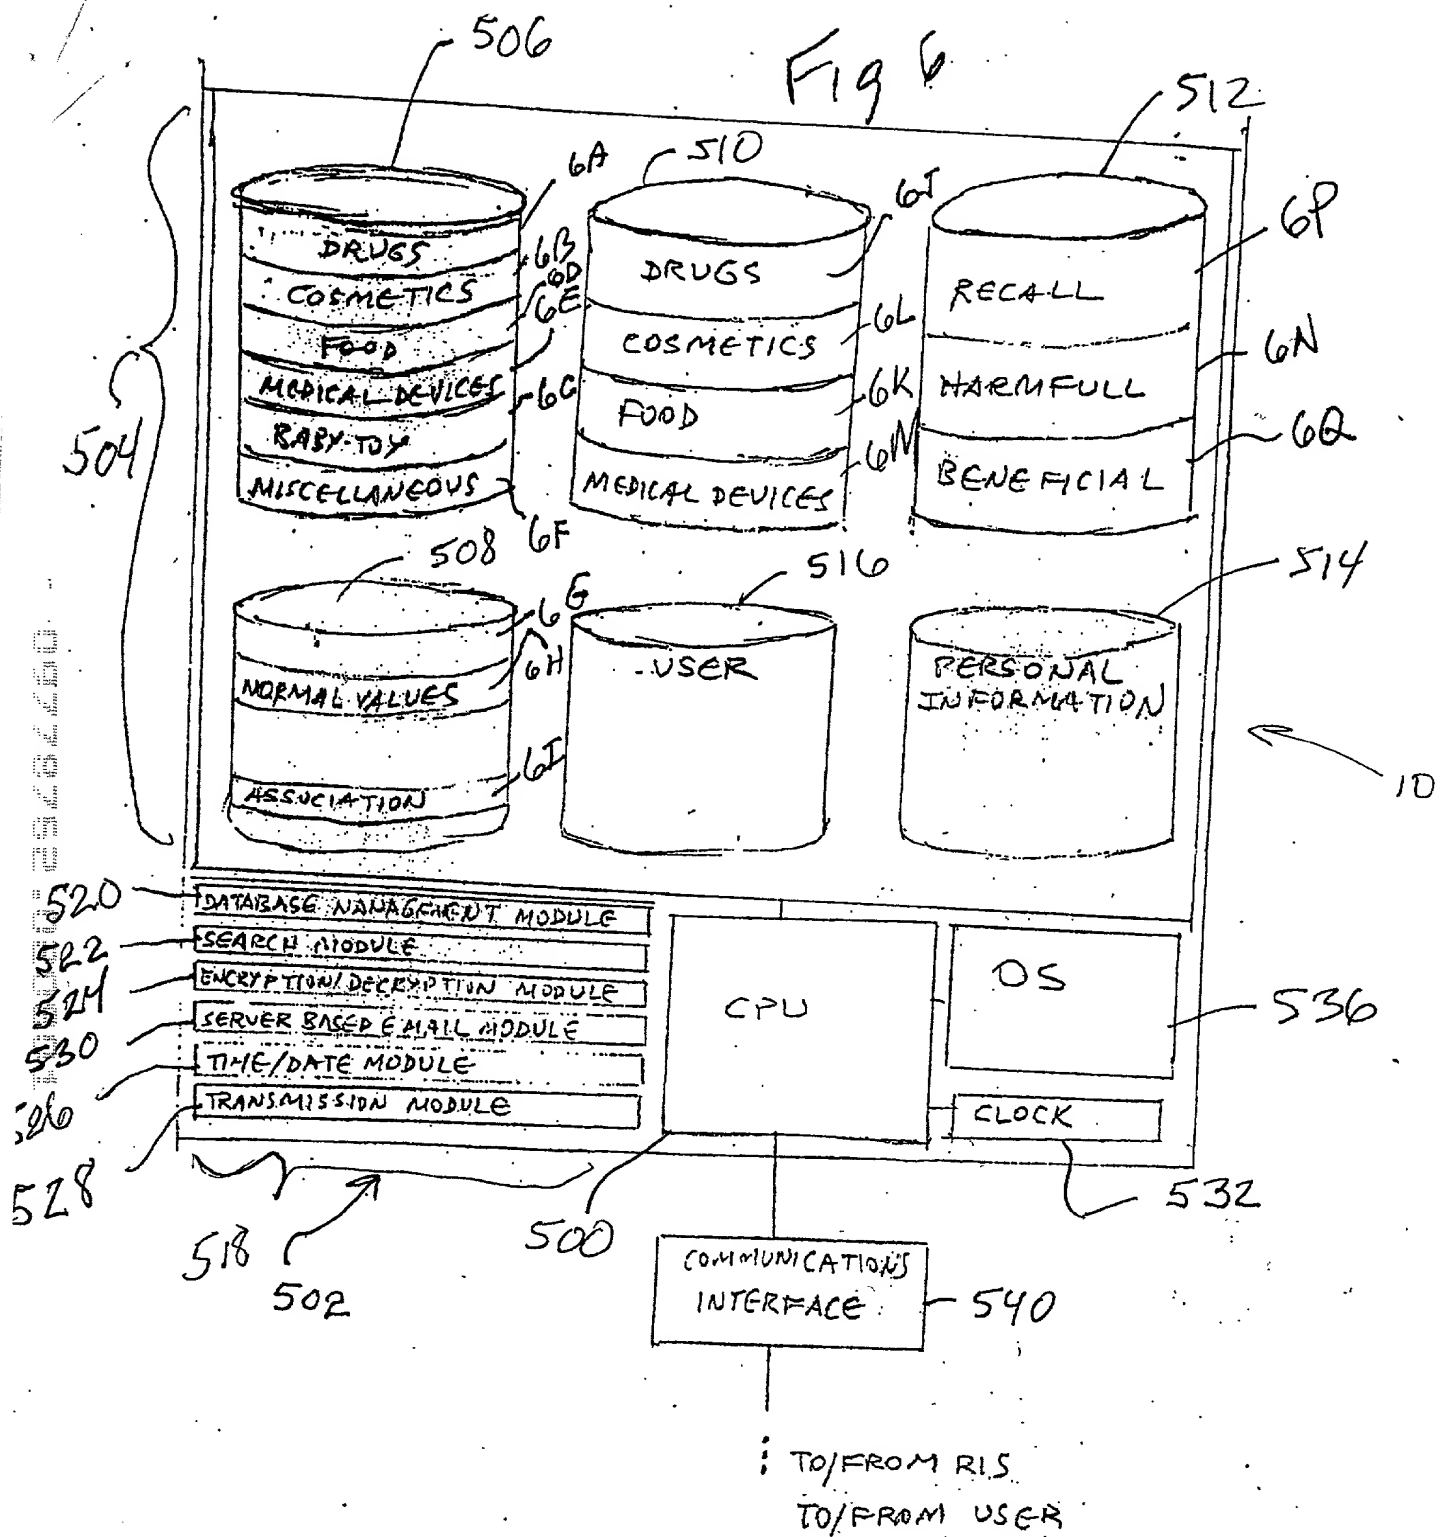 Fig 6
506
510
512
504
6A
6B
6D
6E
6C
6F
DRUGS
COSMETICS
FOOD
MEDICAL DEVICES
BABY-TOY
MISCELLANEOUS
6J
6L
6K
6M
DRUGS
COSMETICS
FOOD
MEDICAL DEVICES
6P
6N
6Q
RECALL
HARMFULL
BENEFICIAL
508
516
514
6G
6H
6I
NORMAL VALUES
ASSOCIATION
USER
PERSONAL
INFORMATION
10
520
DATABASE NANAGEMENT MODULE
522
SEARCH MODULE
524
ENCRYPTION/DECRYPTION MODULE
530
SERVER BASED EMAIL MODULE
526
TIME/DATE MODULE
528
TRANSMISSION MODULE
CPU
OS
536
CLOCK
532
518
502
500
COMMUNICATIONS
INTERFACE
540
TO/FROM RIS
TO/FROM USER